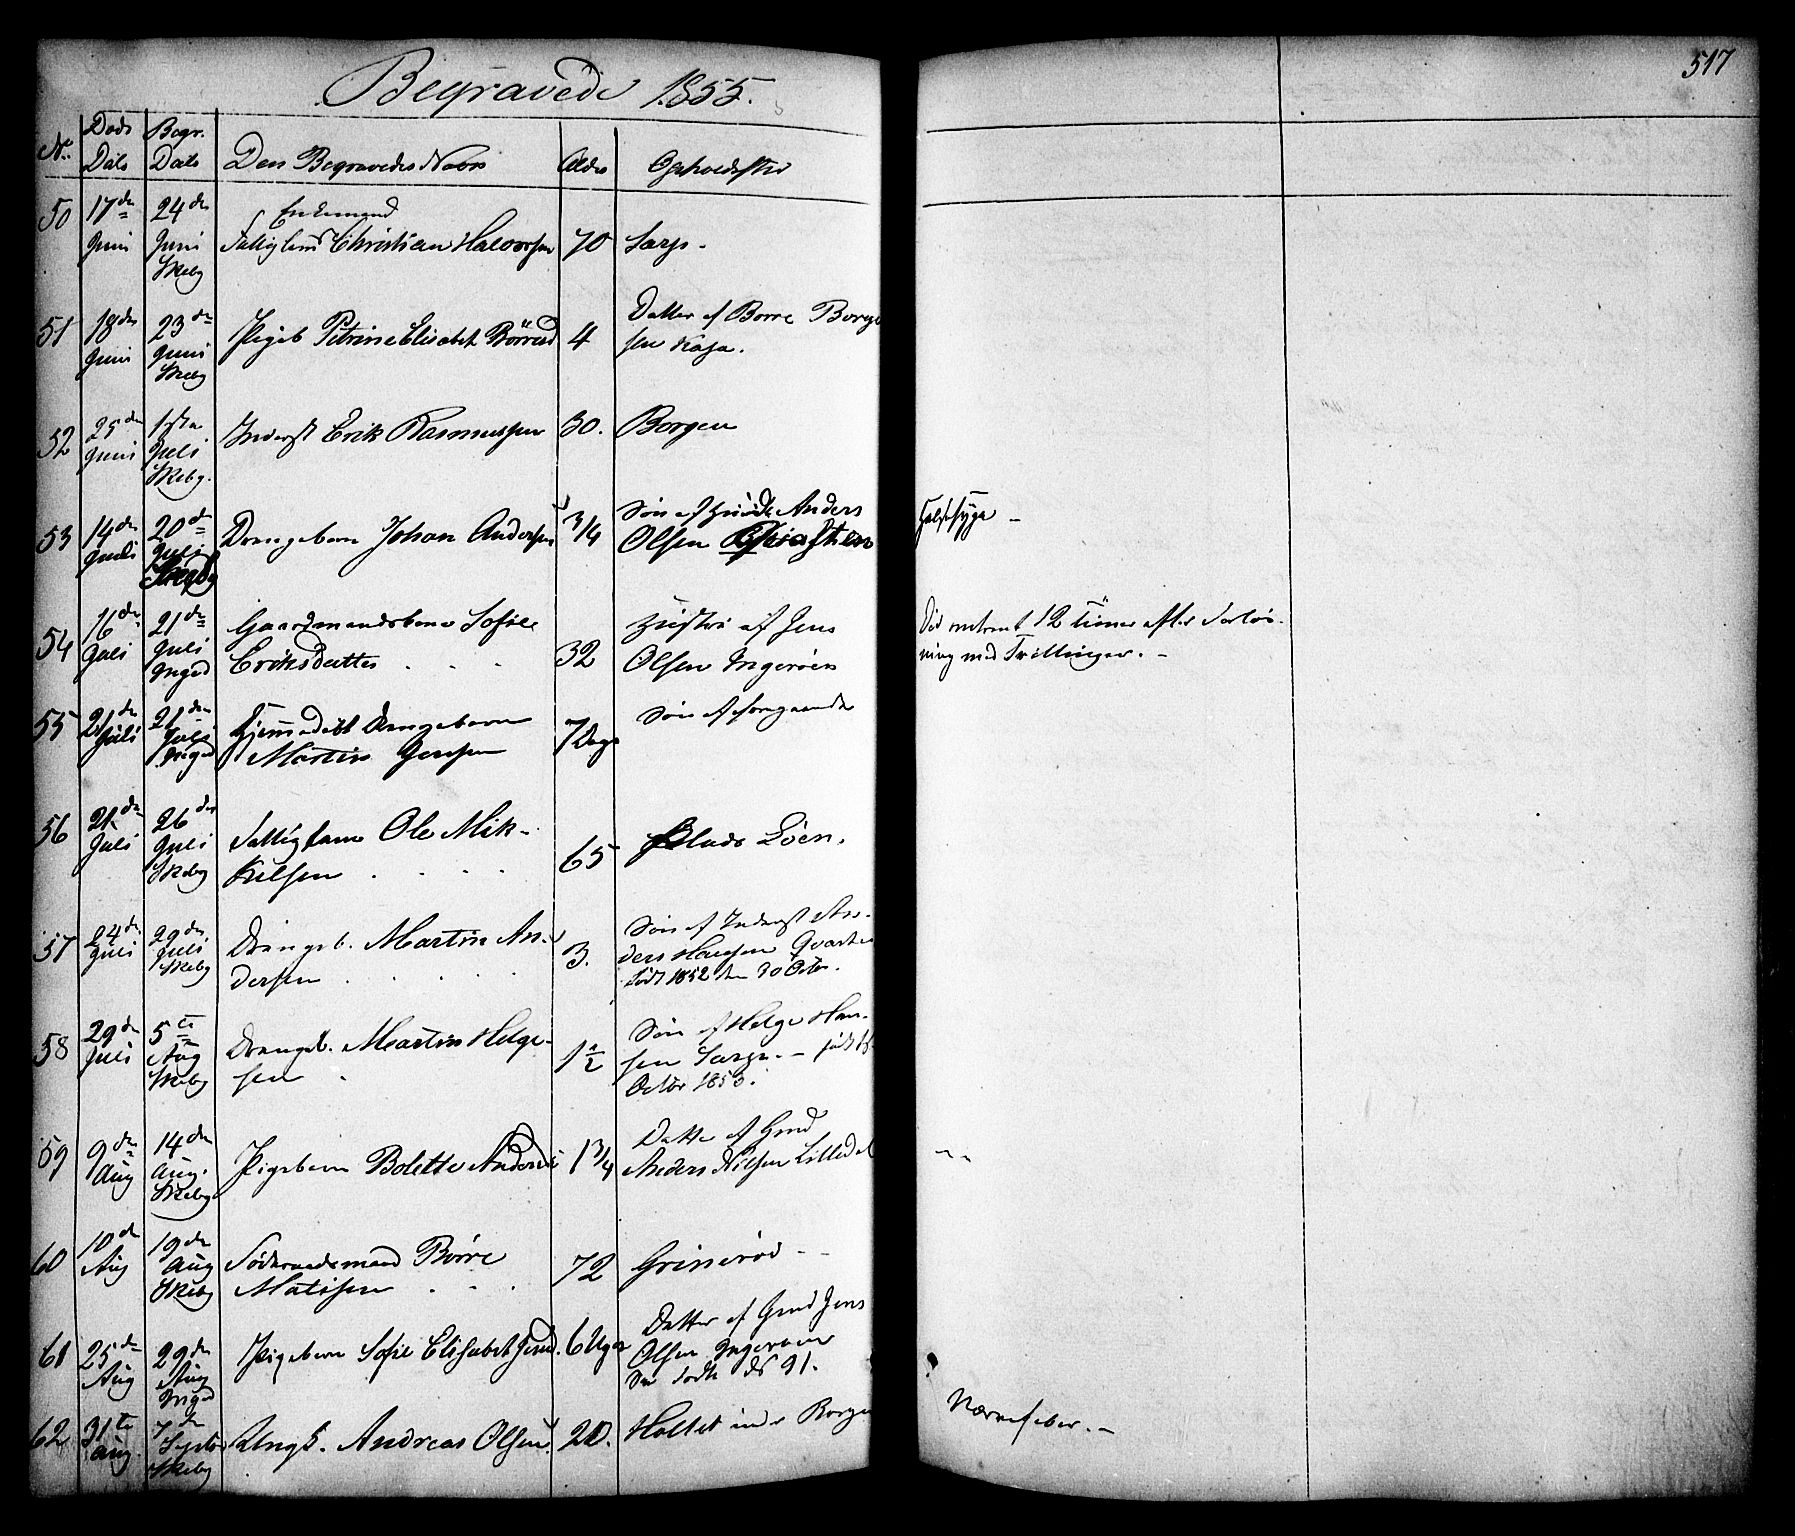 Begravede 1855.
517
No. Døds Dato Begr. Dato Den Begravedes Navn Alder Opholdsted
50 17de Juni 24de Juni Skebg Enkemand Christian Halvorsen 70 Sarp.
51 18de Juni 23de Juni Skebg Pigeb Petrine Elisabet Börresd 4 Datter af Borre
52 25de Juni 1ste Juli Skebg. Inderst Erik Rasmussen 30. Borgen
53 14de Juli 20de Juli Drengebarn Johan Andersen 3/4 Søn af Anders
Olsen
Halssyge –
54 16de Juli 21de Juli Inged Gaardmandskone Sofie
Eriksdatter . . . 32 Hustru af Jens
Olsen Ingerøen
Død omtrent 12 Timer efter Forløs-
ning med Tvillinger. –
55 21de Juli 21de Juli Inged Hjemmedøbt Drengebarn
Martin Jensen 7 Dage Søn af foregaaende
56 21de Juli 26de Juli Skebg Ole Mik-
kelsen . . . . 65 Løen.
57 24de Juli 29de Juli Skebg Drengeb. Martin An-
dersen . . . . 3. Søn af Inderst An-
ders Hansen
født 1852 den 30 Octbr.
58 29de Juli 5te Aug Skebg Drengeb. Martin Helge-
sen . 1 1/2 Søn af Helge Han-
sen Sarp. – født
Octbr 1853.
59 9de Aug 14de Aug. Skebg Pigebarn Bolette Andersd 1 3/4 Datter af Grmd
Anders Nilsen Lilledal
60 10de Aug 19de Aug Skebg Føderaadsmand Börre
Matisen . . . 72 Grinerød –
61 25de Aug 29de Aug Inged Pigebarn Sofie Elisabet Jensd. 6 Uger Datter af Grmd Jens
Olsen Ingerøen
62 31te Aug 7de Septbr Skebg Ungk. Andreas Olsen 20. Holtet under Borgen
Nervefeber. –